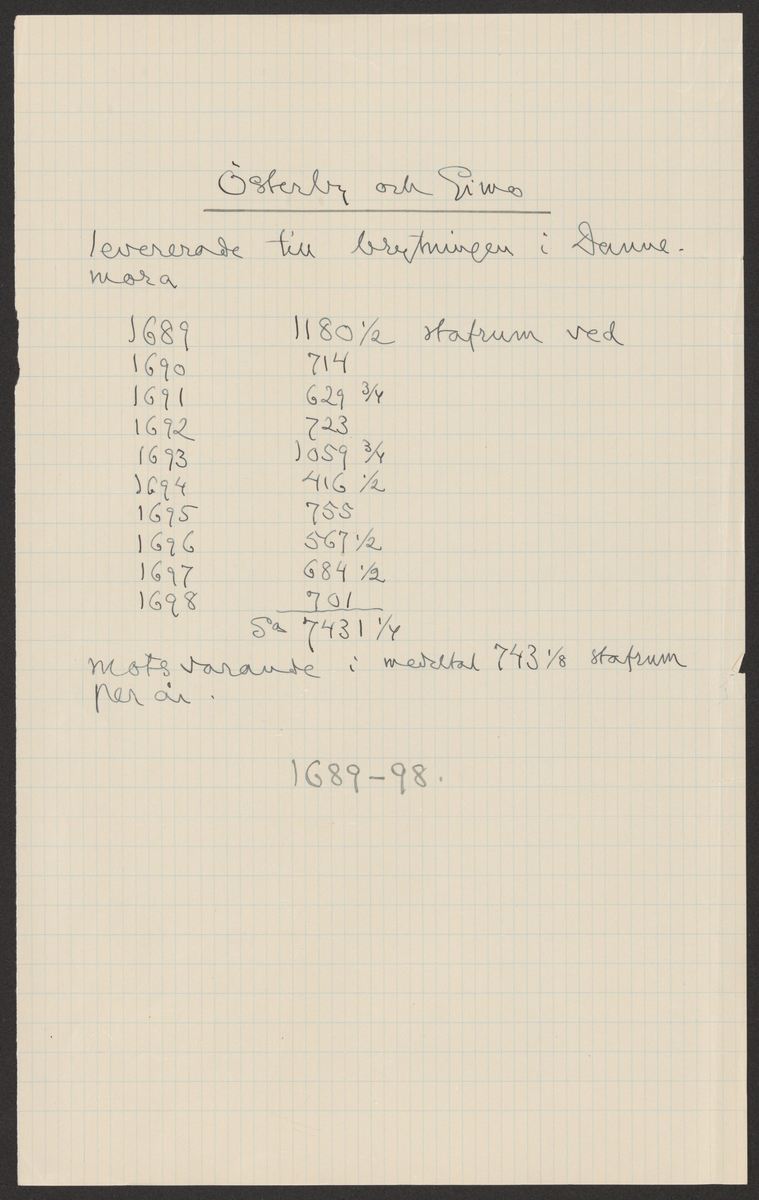 Österby och Gimo
levererade till brytningen i Danne-
mora
1689 1180 1/2 stafrum ved
1690 714
1691 629 3/4
1692 723
1693 1059 3/4
1694 416 1/2
1695 755
1696 567 1/2
1697 684 1/2
1698 701
Sa 7431 1/4
motsvarande i medeltal 743 1/8 stafrum
per år.
1689-98.